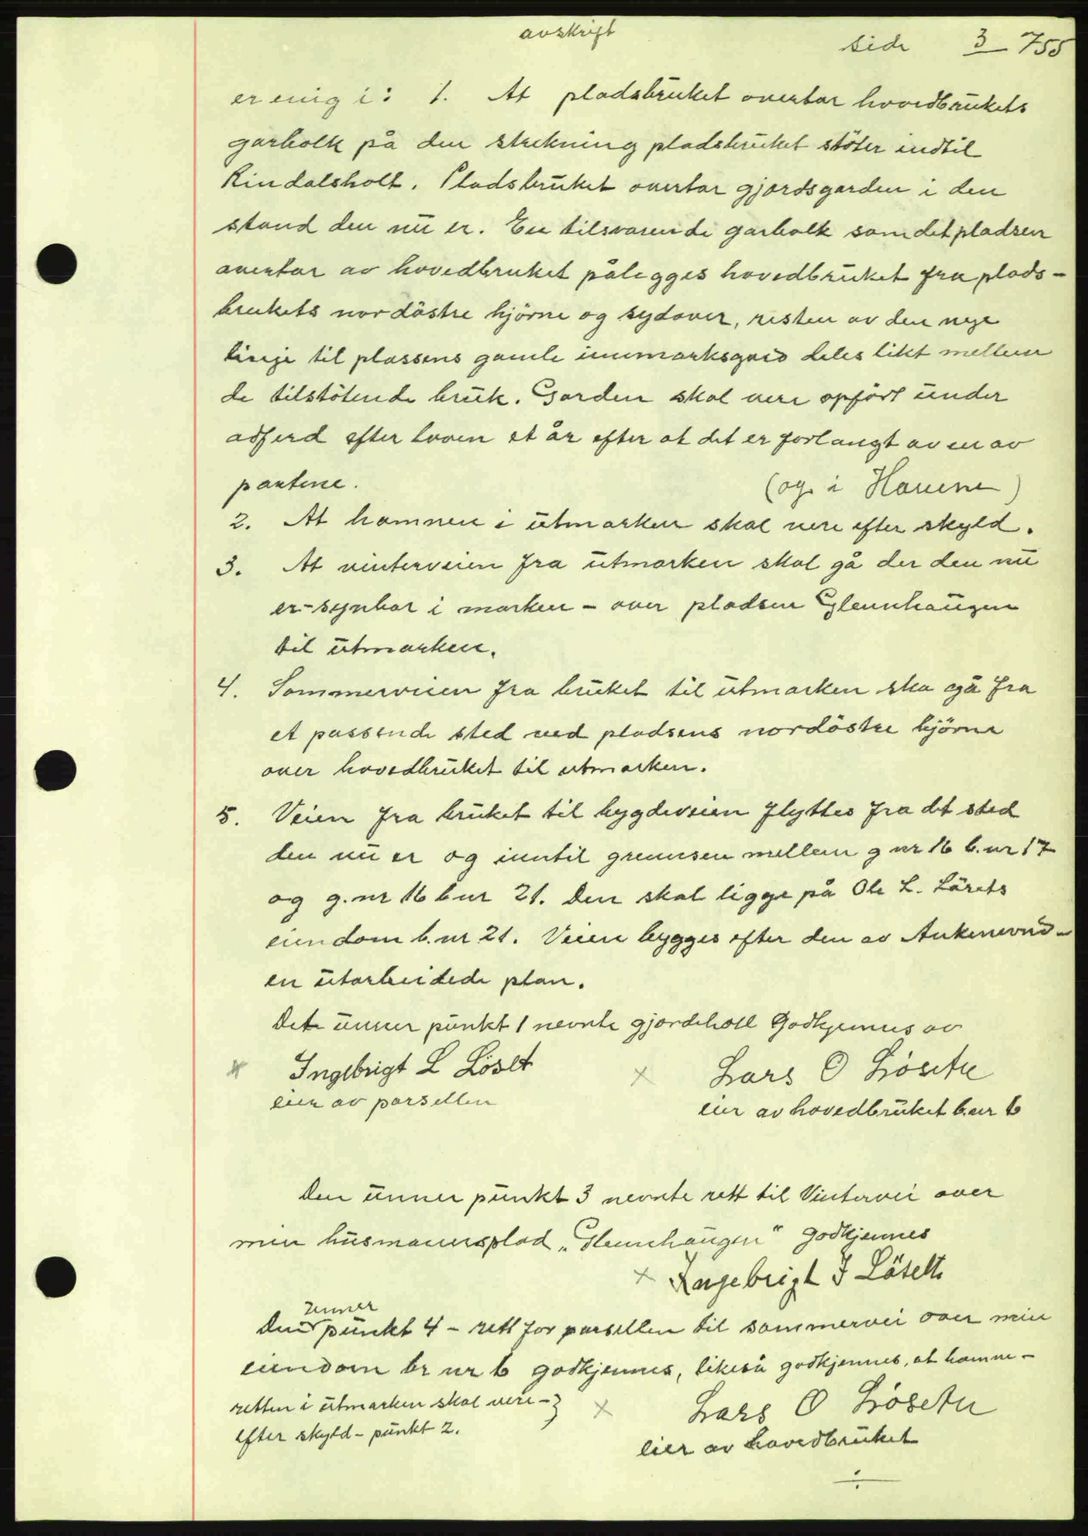 avskrift
side 3 755
er enig i: 1. At pladsbruket overtar hovedbrukets
garholk på den strekning pladsbruket stöter indtil
Rindalsholt. Pladsbruket overtar gjerdsgarden i den
stand den nu er. En tilsvarende garholk som det pladsen
overtar av hovedbruket pålegges hovedbruket fra plads-
brukets nordöstre hjörne og sydover, resten av den nye
linje til plassens gamle innmarksgard deles likt mellem
de tilstötende bruk. Garden skal vere opfört under
adferd efter loven et år efter at det er forlangt av en av
partene. (og i Havene)
2. At hamnen i utmarken skal vere efter skyld.
3. At vinterveien fra utmarken skal gå der den nu
er-synbar i marken - over pladsen Glennhaugen
til utmarken.
4. Sommerveien fra bruket til utmarken ska gå fra
et passende sted ved pladsens nordöstre hjörne
over hovedbruket til utmarken.
5. Veien fra bruket til bygdeveien flyttes fra det sted
den nu er og inntil grennsen mellem g nr 16 b. nr 17
og g. nr 16 b nr 21. Den skal ligge på Ole L. Lösets
eiendom b. nr 21. Veien bygges efter den av
en utarbeidede plan.
Det unner punkt 1 nevnte gjordehold Godkjennes av
Ingebrigt L Löset x Lars O Løsette
eier av parsellen eier av hovedbruket b. nr 6
Den unner punkt 3 nevnte rett til Vintervei over
min husmannsplad „Glennhaugen" godkjennes
x Ingebrigt I Lösett
unner
Den punkt 4 - rett for parsellen til sommervei over min
eiendom br nr 6 godkjennes, likeså godkjennes, at hamne-
retten i utmarken skal vere - } x Lars O Løseten
efter skyld - punkt 2.
eier av hovedbruket